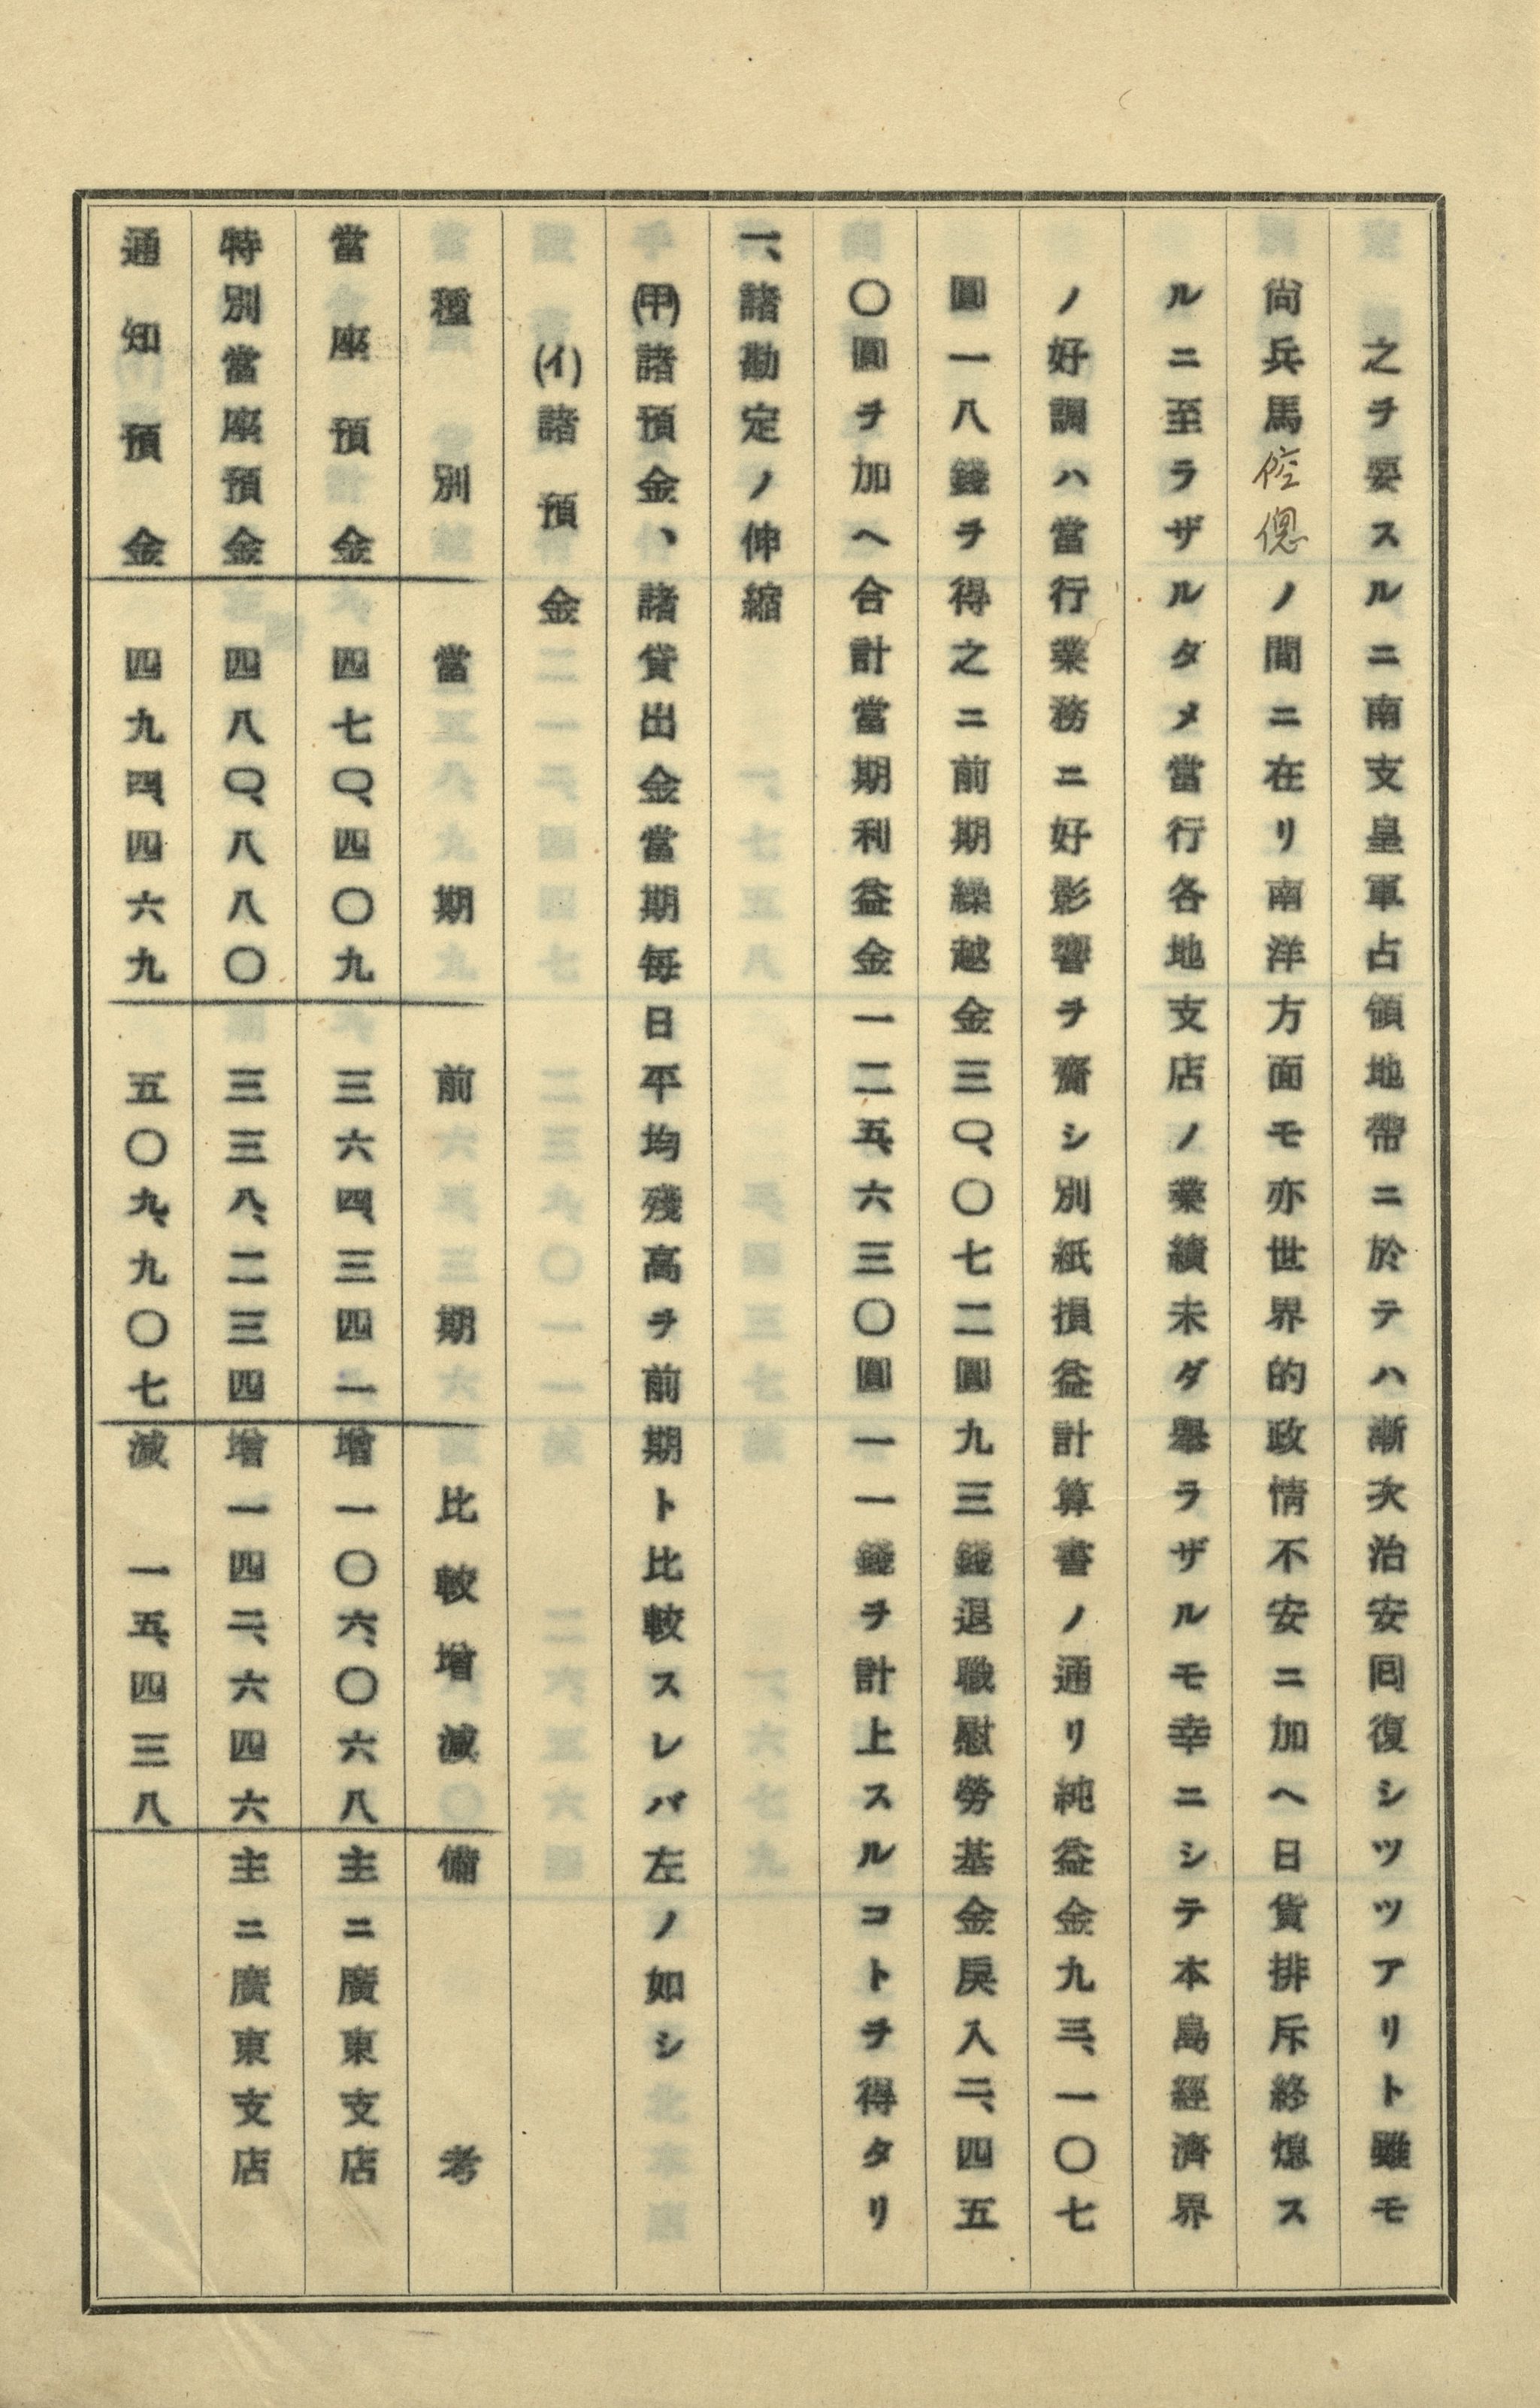 之ヲ要スルニ南支皇軍占領地帶ニ於テハ漸次治安囘復シツツアリト雖モ
尙兵馬倥偬ノ間ニ在リ南洋方面モ亦世界的政情不安ニ加ヘ日貨排斥終熄ス
ルニ至ラザルタメ當行各地支店ノ業績未ダ擧ラザルモ幸ニシテ本島經濟界
ノ好調ハ當行業務ニ好影響ヲ齎シ別紙損益計算書ノ通リ純益金九三、一〇七
圓一八錢ヲ得之ニ前期繰越金三〇、〇七二圓九三錢退職慰勞基金戾入二、四五
〇圓ヲ加ヘ合計當期利益金一二五、六三〇圓一一錢ヲ計上スルコトヲ得タリ
一、諸勘定ノ伸縮
(甲)諸預金、諸貸出金當期每日平均殘高ヲ前期ト比較スレバ左ノ如シ
(イ)諸預金
種別 當期 前期 比較增減 備考
當座預金 四七〇、四〇九 三六四、三四一 增一〇六、〇六八 主ニ廣東支店
特別當座預金 四八〇、八八〇 三三八、二三四 增一四二、六四六 主ニ廣東支店
通知預金 四九四、四六九 五〇九、九〇七 減一五、四三八